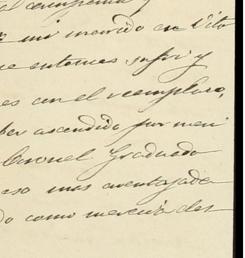 mi marido en Vito
entonces sufri y
es con el reemplazo,
ber ascendido por meri
Coronel Graduado
eso mas aventajada
do como merecia des